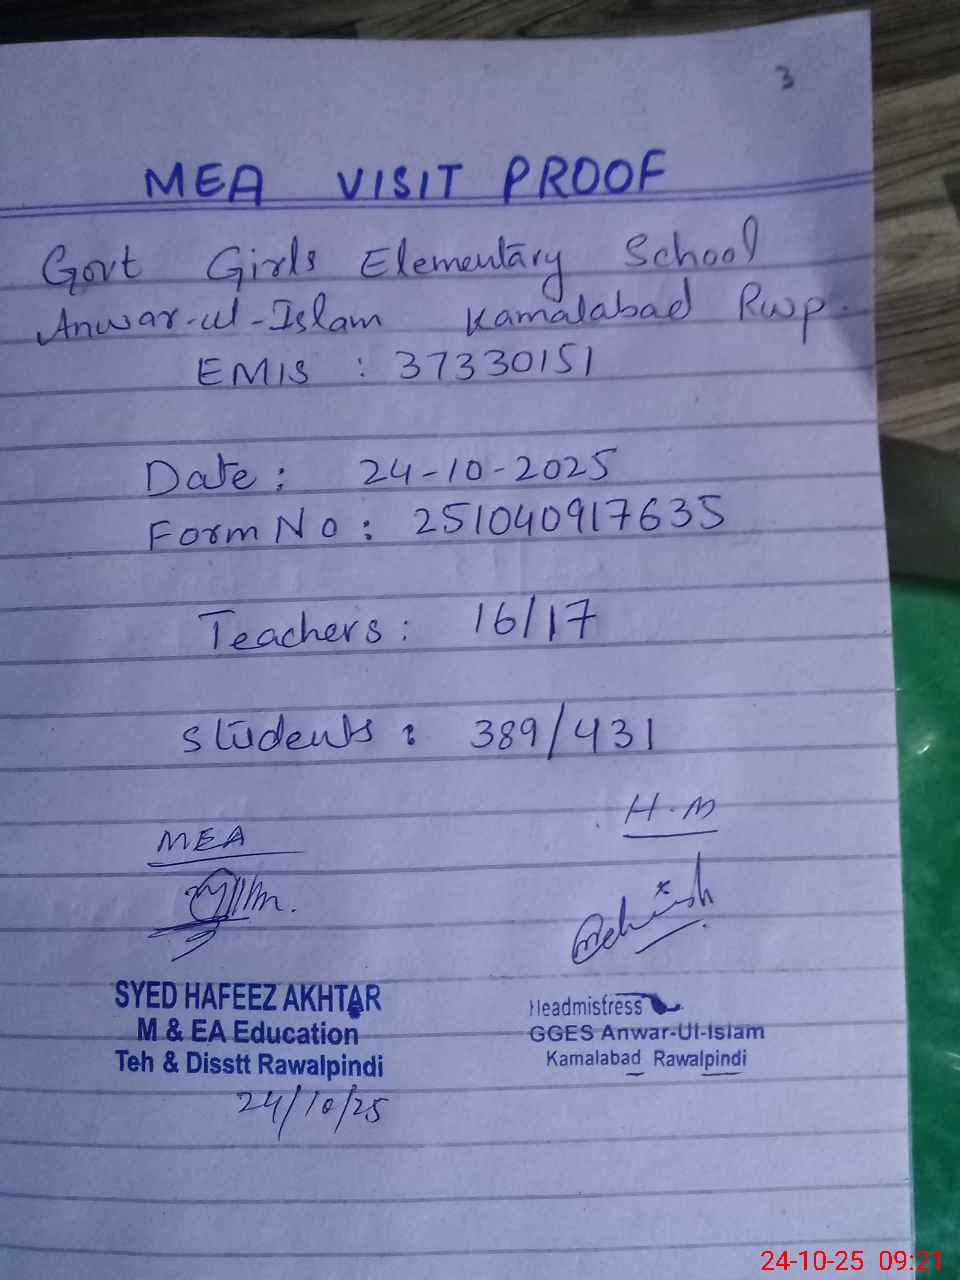 3
MEA VISIT PROOF
Govt Girls Elementary School
Anwar-ul-Islam Kamalabad Rwp.
EMIS : 37330151
Date : 24-10-2025
Form No : 251040917635
Teachers : 16/17
Students : 389/431
MEA
H.M
SYED HAFEEZ AKHTAR
M & EA Education
Teh & Disstt Rawalpindi
24/10/25
Headmistress
GGES Anwar-Ul-Islam
Kamalabad Rawalpindi
24-10-25 09:21